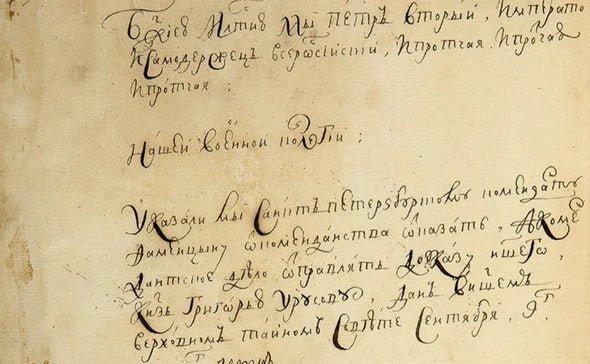 Бж҃иею млт҃ию мы петръ вторый, императо
и самодержецъ всеросиискии, ипротчая ипрочая
ипротчая:
нашей военной колегіи:
Указали мы санктъ петерзбурскому коменданту
 ѿкомендантства ѿказать, а коме
дантское дѣло ѿправлять доуказу ншего,
кн҃зь григорью урусову, данъ в нашемъ
верховномъ тайномъ совѣте сентября, 9г